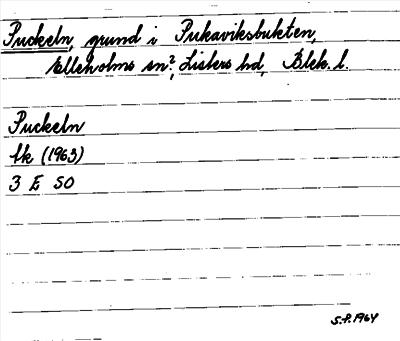 Puckeln, grund i Pukaviksbukten,
Elleholms sn?, Listers hd, Blek. l.
Puckeln
Sk (1963)
3 E SO
S.P. 1964